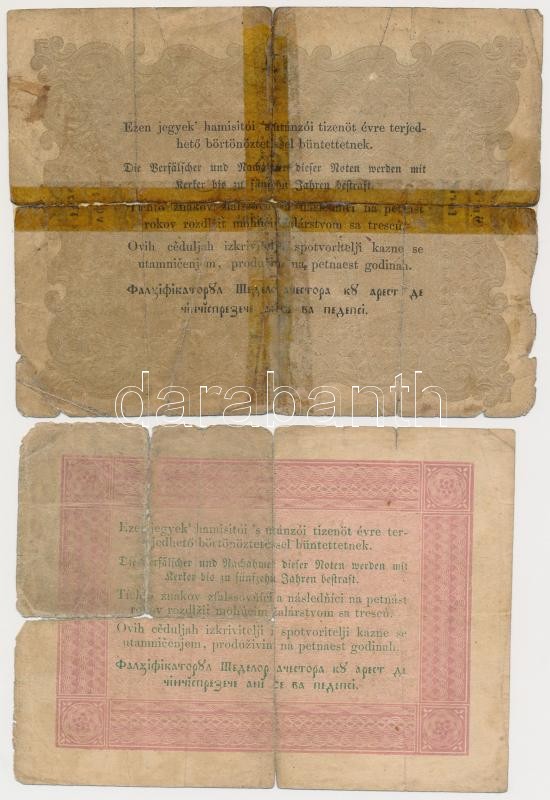 Ezen jegyek' hamisitói 's utánzói tizenöt évre terjed-
hető börtönöztetéssel büntettetnek.
Die Verfälscher und Nachahmer dieser Noten werden mit
Kerker bis zu fünfzehn Jahren bestraft.
znakov a následníci na petnást
rokov rozdlžii mohúcim žalárstvom sa trescú.
Ovih cěduljah izkrivitelji i spotvoritelji kazne se
utamničenjem, produživim na petnaest godinah.
Фалціфікаторул Шеделор ачестора кꙋ арест де
чінчіспрезече ані се ва педепсі.
darabanth
Ezen jegyek' hamisitói 's utánzói tizenöt évre ter-
jedhető börtönöztetéssel büntettetnek.
Die Verfälscher und Nachahmer dieser Noten werden mit
Kerker bis zu fünfzehn Jahren bestraft.
Tichto znakov zfalssovníci a následníci na petnást
rokov rozdlžii mohúcim žalárstvom sa trescú.
Ovih cěduljah izkrivitelji i spotvoritelji kazne se
utamničenjem, produživim na petnaest godinah.
Фалціфікаторул Шеделор ачестора кꙋ арест де
чінчіспрезече ані се ва педепсі.